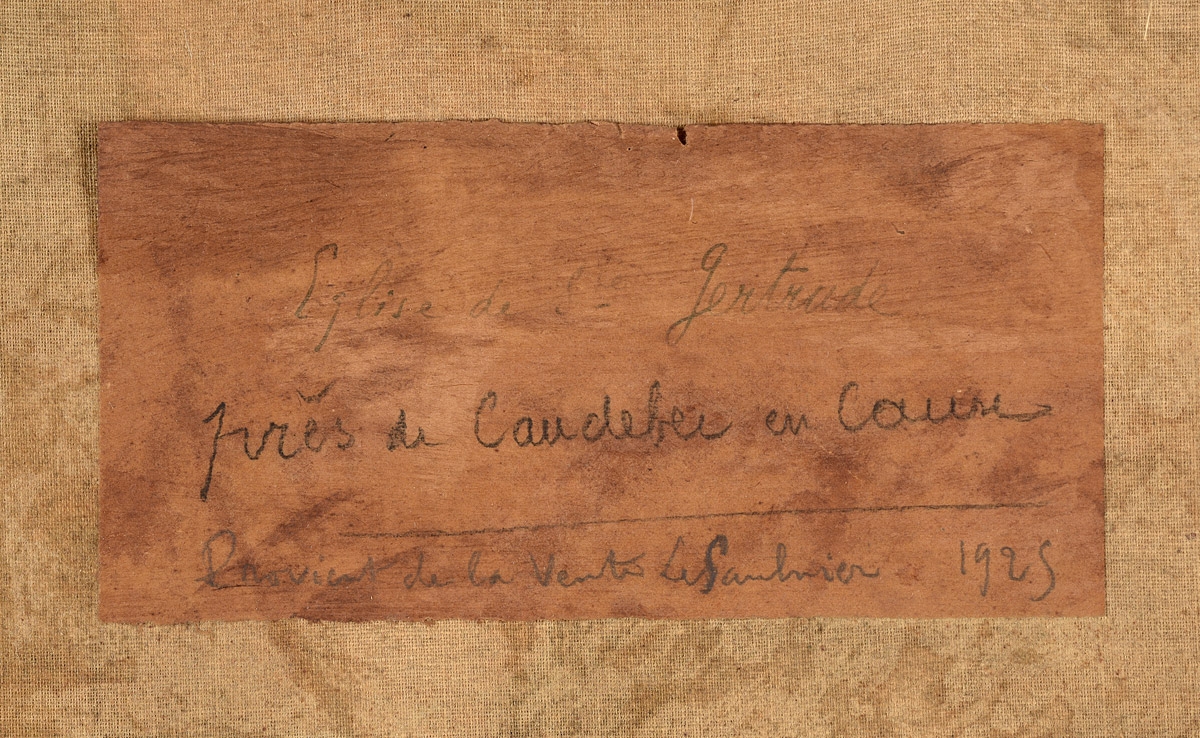 Eglise de Ste Gertrude
près de Caudebec en Caux
Provient de la Vente LeSaulnier 1925